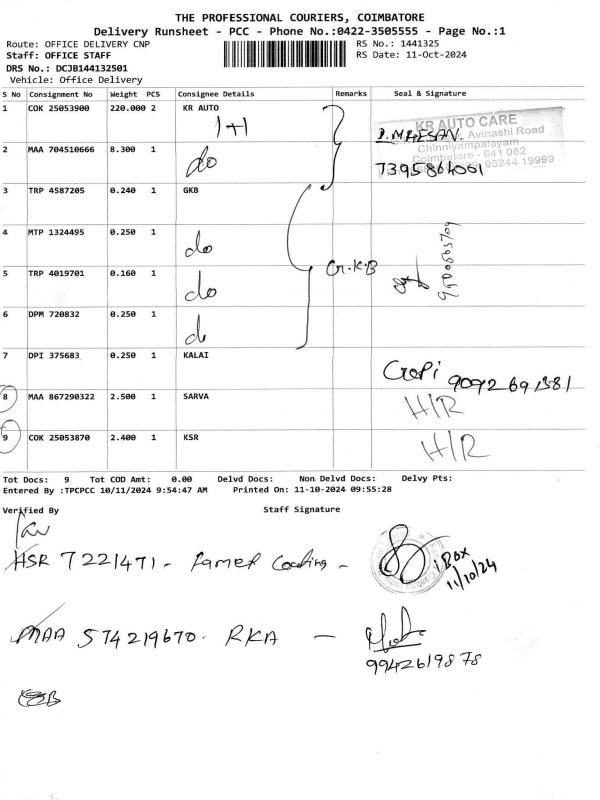 THE PROFESSIONAL COURIERS, COIMBATORE
Delivery Runsheet - PCC - Phone No.:0422-3505555 - Page No.:1
Route: OFFICE DELIVERY CNP RS No.: 1441325
Staff: OFFICE STAFF RS Date: 11-Oct-2024
DRS No.: DCJB144132501
Vehicle: Office Delivery
S No Consignment No Weight PCS Consignee Details Remarks Seal & Signature
1 COK 25053900 220.000 2 KR AUTO
1+1
KR AUTO CARE
Avinashi Road
Chinniyampalayam
Coimbatore - 641 062
95244 19999
2 MAA 704510666 8.300 1 do 7395864001
3 TRP 4587205 0.240 1 GKB
4 MTP 1324495 0.250 1 do
G.K.B
5 TRP 4019701 0.160 1 do
6 DPM 720832 0.250 1 do
7 DPI 375683 0.250 1 KALAI
Gopi 9092691381
8 MAA 867290322 2.500 1 SARVA H/R
9 COK 25053870 2.400 1 KSR H/R
Tot Docs: 9 Tot COD Amt: 0.00 Delvd Docs: Non Delvd Docs: Delvy Pts:
Entered By :TPCPCC 10/11/2024 9:54:47 AM Printed On: 11-10-2024 09:55:28
Verified By Staff Signature
HSR 7221471 - Coating - 1 Box
11/10/24
MAA 574219670. RKA —
9942619878